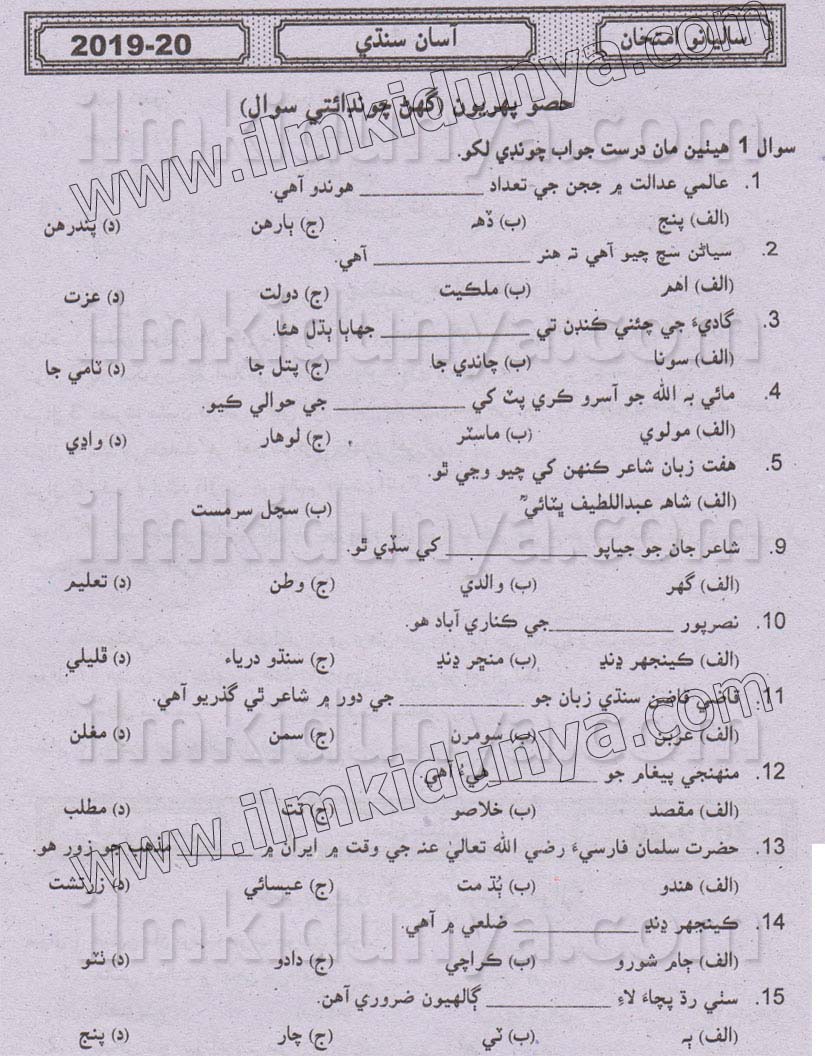 سالیانو امتحان
آسان سنڌي
2019-20
حصو پهريون (گهڻ چونڊائتي سوال)
سوال 1 هيٺين مان درست جواب چونڊي لکو.
1. عالمي عدالت ۾ ججن جي تعداد ________ هوندو آهي.
(الف) پنج (ب) ڏهه (ج) ٻارهن (د) پندرهن
2. سياڻن سچ چيو آهي تہ هنر ________ آهي.
(الف) اهم (ب) ملڪيت (ج) دولت (د) عزت
3. گاڏيءَ جي چئني ڪنڊن تي ________ جهاٻا ٻڌل هئا.
(الف) سونا (ب) چاندي جا (ج) پتل جا (د) ٽامي جا
4. مائي بہ الله جو آسرو ڪري پٽ کي ________ جي حوالي ڪيو.
(الف) مولوي (ب) ماسٽر (ج) لوهار (د) واڍي
5. هفت زبان شاعر ڪنهن کي چيو وڃي ٿو.
(الف) شاهہ عبداللطيف ڀٽائيؒ (ب) سچل سرمست
9. شاعر جان جو جياپو ________ کي سڏي ٿو.
(الف) گهر (ب) والدي (ج) وطن (د) تعليم
10. نصرپور ________ جي ڪناري آباد هو.
(الف) ڪينجهر ڍنڍ (ب) منڇر ڍنڍ (ج) سنڌو درياء (د) ڦليلي
11. قاضي قاضن سنڌي زبان جو ________ جي دور ۾ شاعر ٿي گذريو آهي.
(الف) عربن (ب) سومرن (ج) سمن (د) مغلن
12. منهنجي پيغام جو ________ هيءُ آهي.
(الف) مقصد (ب) خلاصو (ج) تت (د) مطلب
13. حضرت سلمان فارسيءَ رضي الله تعاليٰ عنہ جي وقت ۾ ايران ۾ ________ مذهب جو زور هو.
(الف) هندو (ب) ٻُڌ مت (ج) عيسائي (د) زرتشت
14. ڪينجهر ڍنڍ ________ ضلعي ۾ آهي.
(الف) ڄام شورو (ب) ڪراچي (ج) دادو (د) ٺٽو
15. سٺي رڌ پچاءَ لاءِ ________ ڳالهيون ضروري آهن.
(الف) ٻہ (ب) ٽي (ج) چار (د) پنج
www.ilmkidunya.com
ilmkidunya.com
ilmkidunya.com
ilmkidunya.com
www.ilmkidunya.com
ilmkidunya.com
ilmkidunya.com